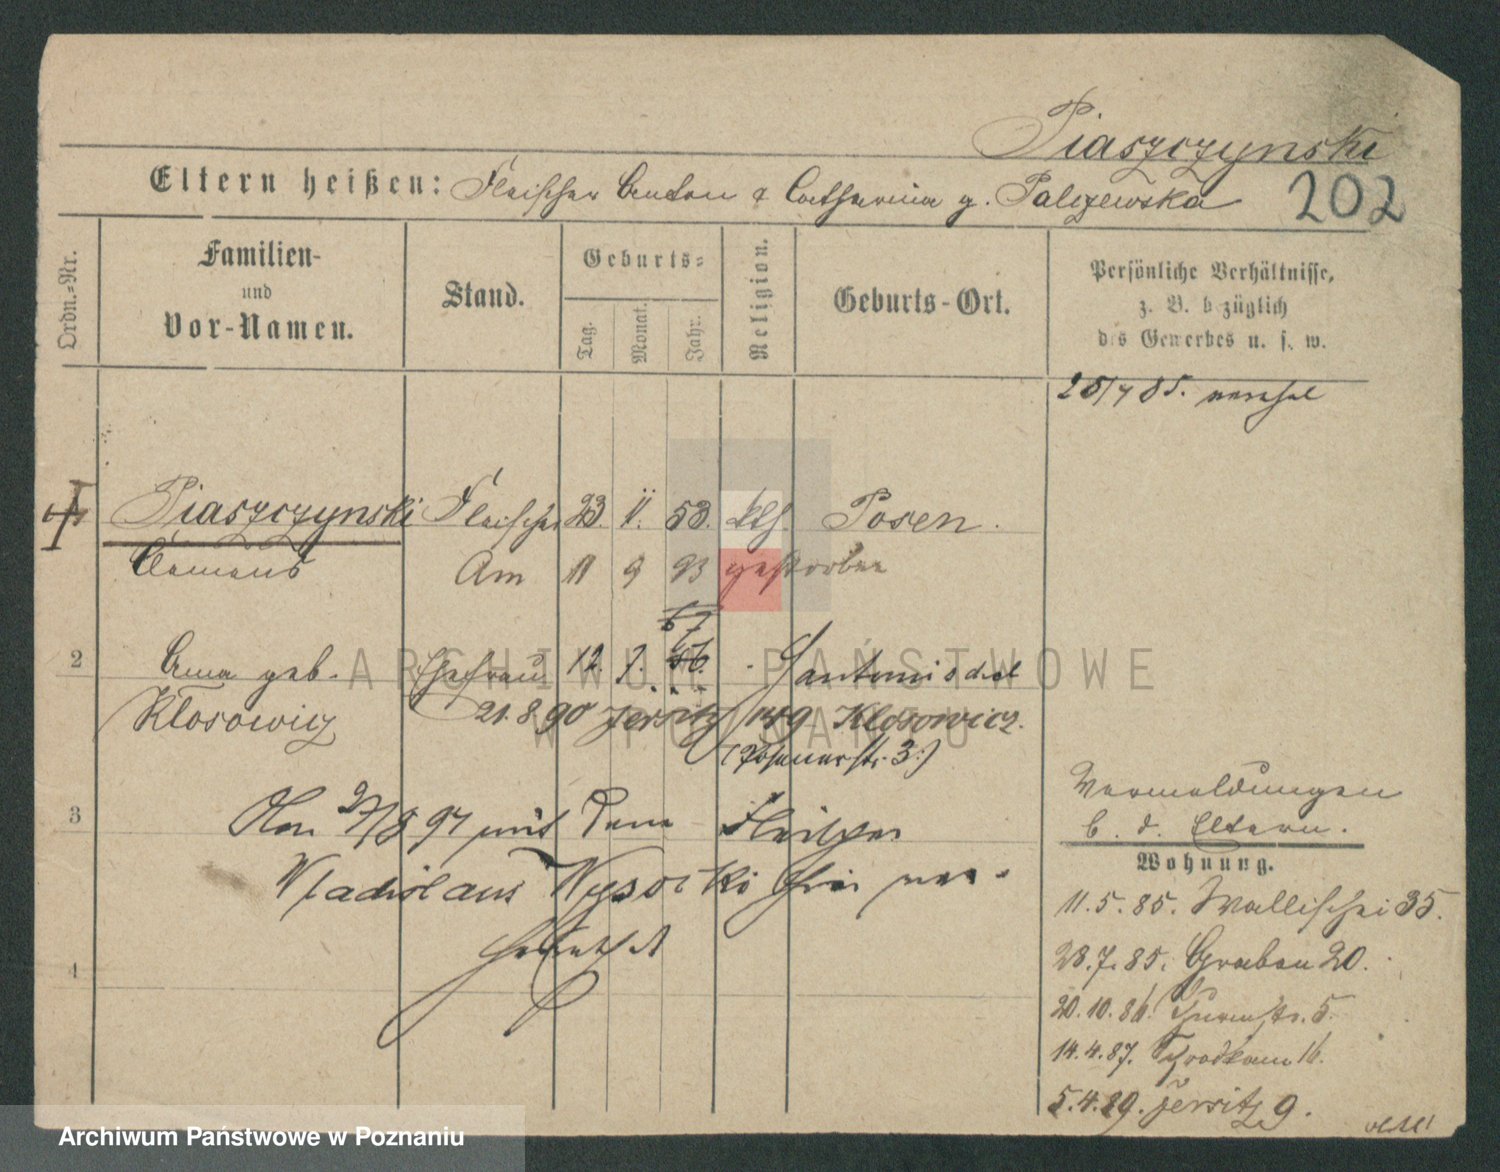 Piaszczynski
Eltern heißen: Fleischer Anton & Catharina g. Palczewska 202
Ordn.-Nr.
Familien-
und
Vor-Namen.
Stand.
Geburts-
Tag.
Monat.
Jahr.
Religion.
Geburts-Ort.
Persönliche Verhältnisse,
z. B. bezüglich
des Gewerbes u. s. w.
25/7 85.
1 Piaszczynski Fleischer 23. 11. 53. kth. Posen.
Clemens Am 11 9 93 gestorben
67
2 Anna geb. Ehefrau 12. 7. 56.
Klosowicz 21.8.90 Jersitz 149 Klosowicz.
(Posenerstr. 3.)
3 97 mit dem Fleischer
Vladislaus Wysocki
4
Vermeldungen
b. d. Eltern.
Wohnung.
11.5.85. Wallischei 35.
28.7.85. Graben 20.
20.10.86. Thurmstr. 5.
14.4.87. Schrodkam 16.
5.4.89. Jersitz 9.
ARCHIWUM PAŃSTWOWE
W POZNANIU
Archiwum Państwowe w Poznaniu